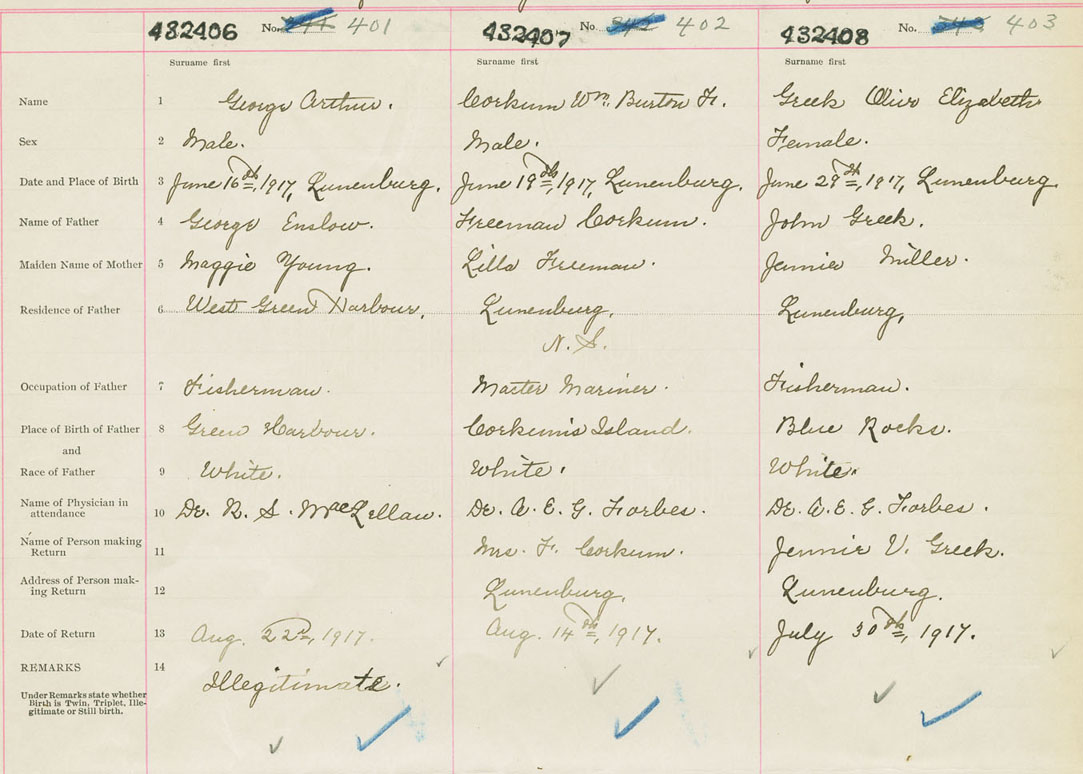 432406 No. 401 432407 No. 402 432408 No. 403
Surname first Surname first Surname first
Name 1 George Arthur. Corkum Wm. Burton Fr. Greek Olive Elizabeth
Sex 2 Male. Male. Female.
Date and Place of Birth 3 June 16th, 1917, Lunenburg. June 19th, 1917, Lunenburg. June 29th, 1917, Lunenburg.
Name of Father 4 George Enslow. Freeman Corkum. John Greek.
Maiden Name of Mother 5 Maggie Young. Lilla Freeman. Jennie Miller.
Residence of Father 6 West Green Harbour, Lunenburg, Lunenburg,
N. S.
Occupation of Father 7 Fisherman. Master Mariner. Fisherman.
Place of Birth of Father 8 Green Harbour. Corkum's Island. Blue Rocks.
and
Race of Father 9 White. White. White.
Name of Physician in
attendance 10 Dr. R. S. MacLellan. Dr. A. E. G. Forbes. Dr. A. E. G. Forbes.
Name of Person making
Return 11 Mrs. F. Corkum. Jennie V. Greek.
Address of Person mak-
ing Return 12 Lunenburg. Lunenburg.
Date of Return 13 Aug. 22nd, 1917. Aug. 14th, 1917. July 30th, 1917.
REMARKS 14 Illegitimate.
Under Remarks state whether
Birth is Twin, Triplet, Ille-
gitimate or Still birth.